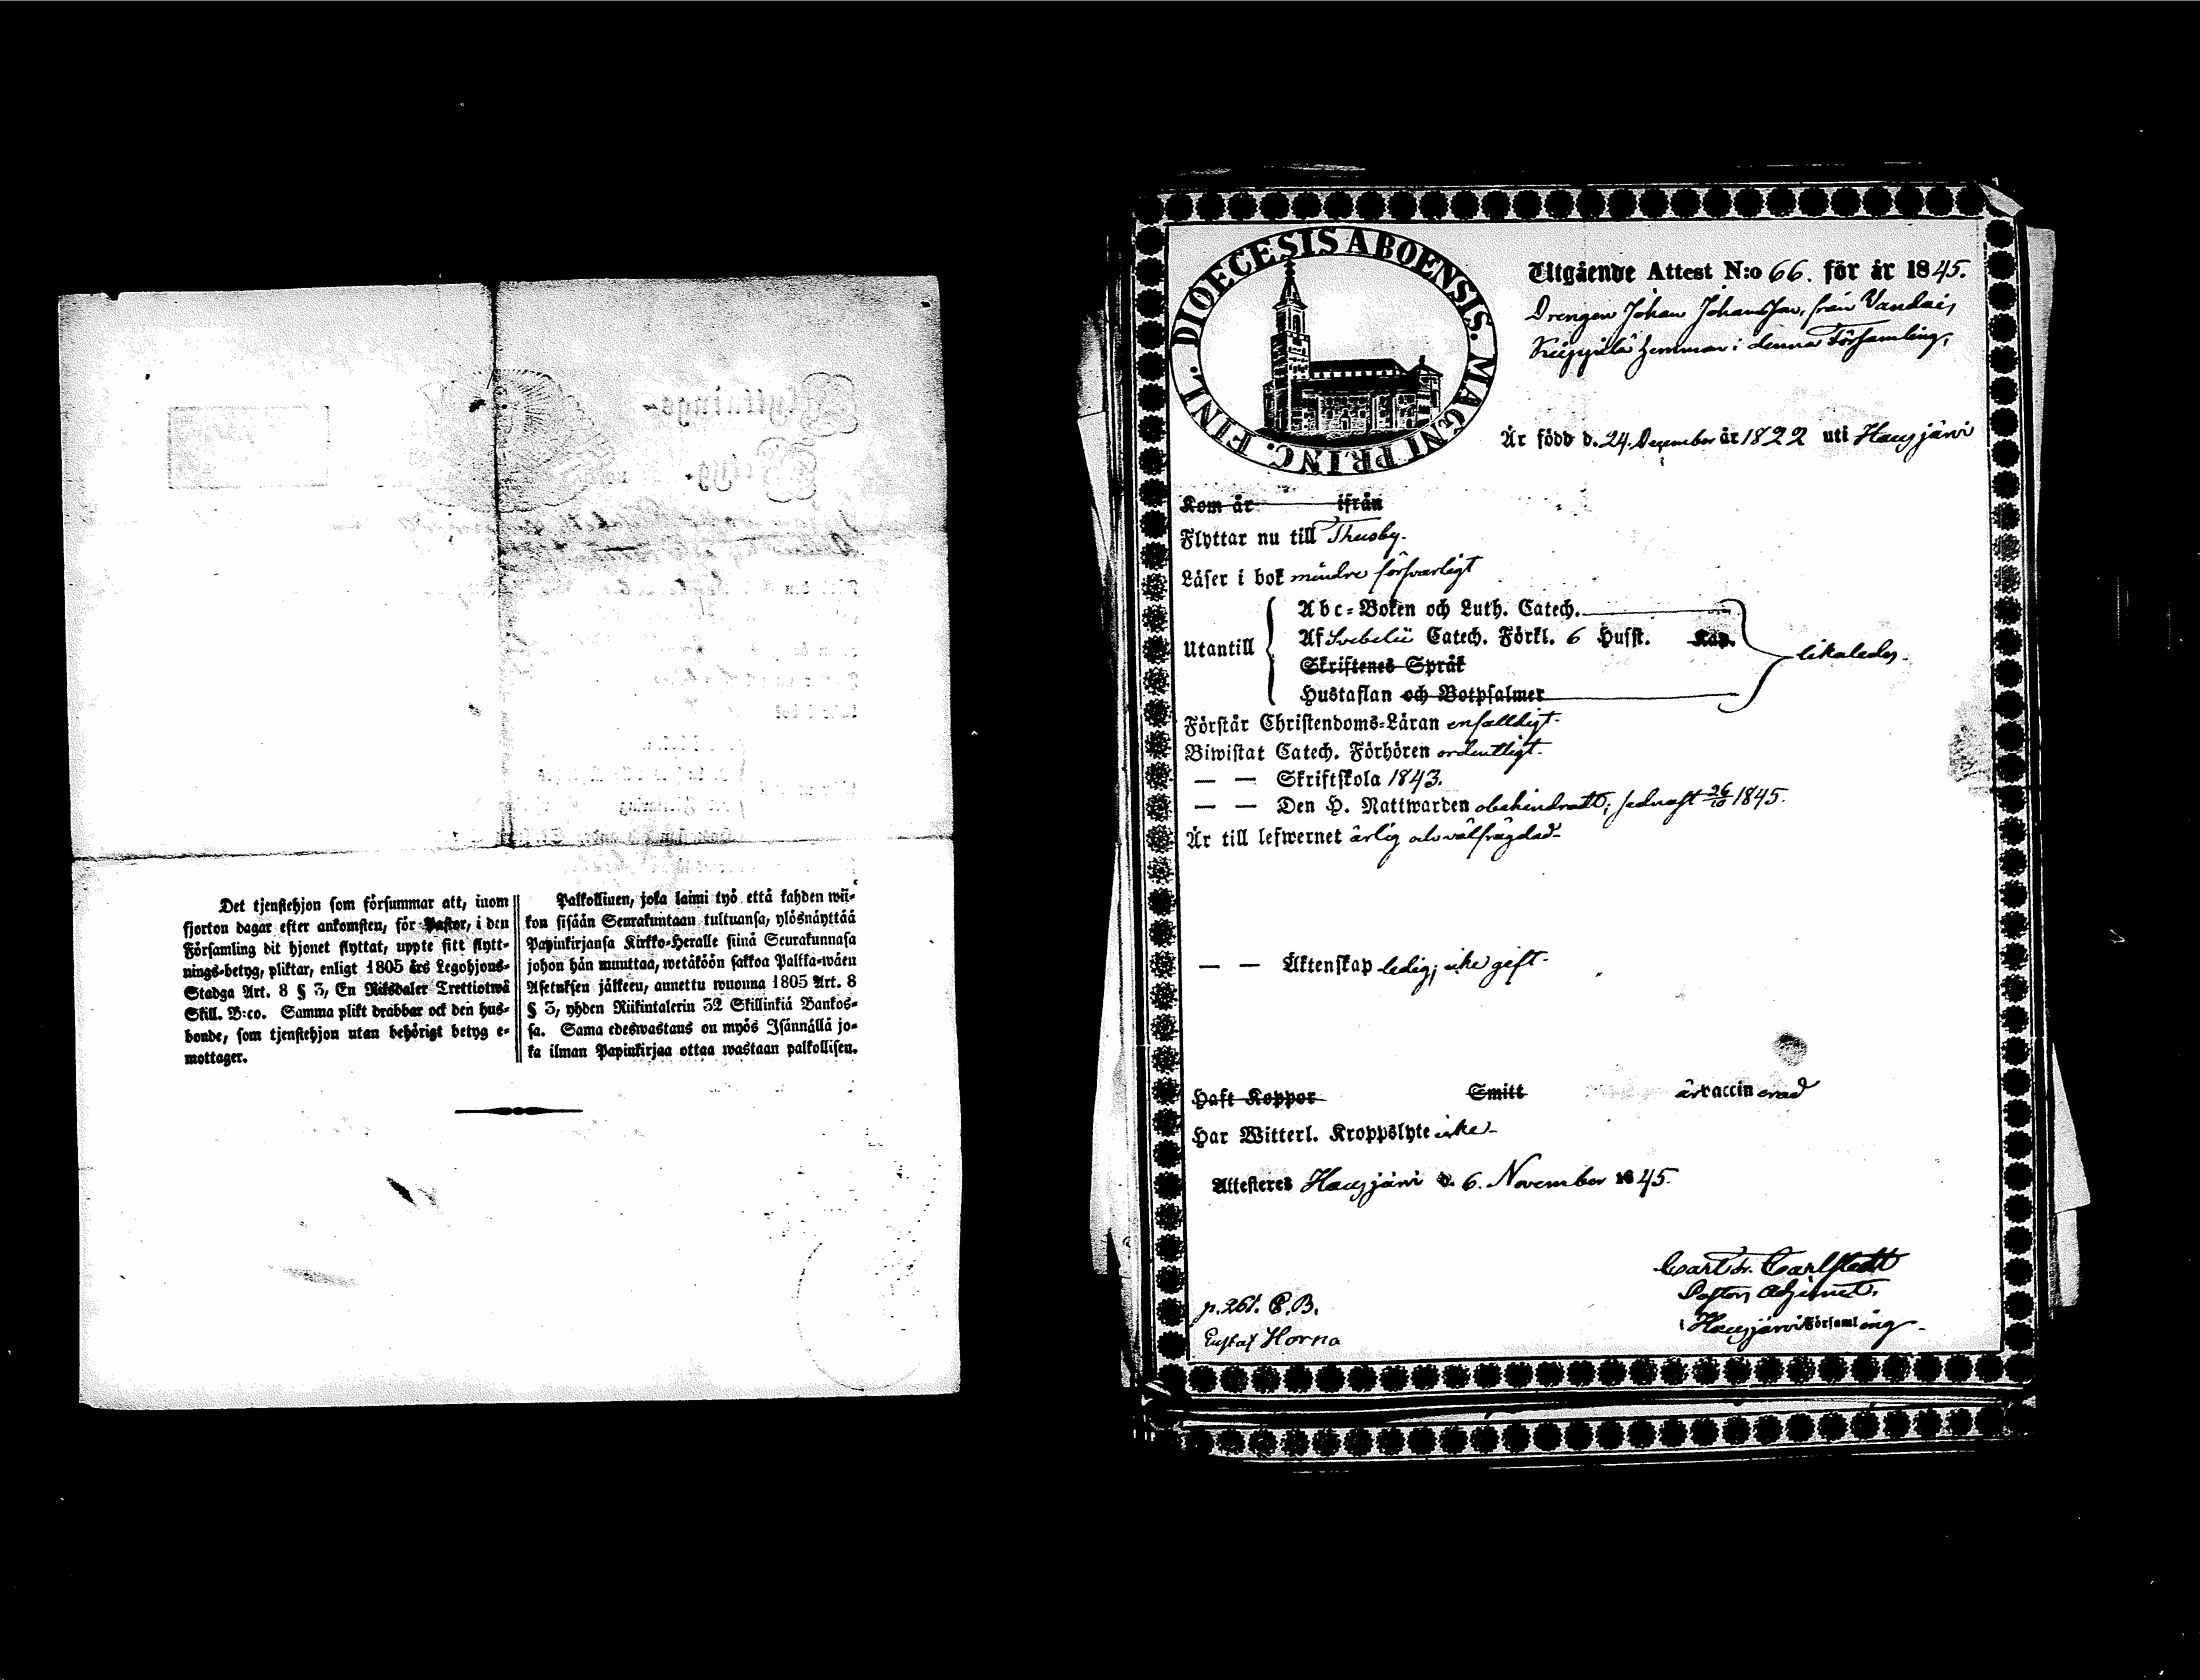 Det tjenstehjon som försummar att, inom
fjorton dagar efter ankomsten, för Pastor, i den
Församling dit hjonet flyttat, uppte sitt flytt-
nings-betyg, pliktar, enligt 1805 års Legohjons-
Stadga Art. 8 § 3, En Riksdaler Trettiotwå
Skill. B:co. Samma plikt drabbar ock den hus-
bonde, som tjenstehjon utan behörigt betyg e-
mottager.
Palkollinen, joka laimi lyö että kahden wii-
kon sisään Seurakuntaan tultuansa, ylösnäyttää
Papinkirjansa Kirkko-Heralle siinä Seurakunnasa
johon hän muuttaa, wetäköön sakkoa Palkka-wäen
Asetuksen jälkeen, annettu wuonna 1805 Art. 8
§ 3, yhden Riikintalerin 32 Skillinkiä Bankos-
sa. Sama edeswastaus on myös Isännällä jo-
ka ilman Papinkirjaa ottaa wastaan palkollisen.
DIOECESIS ABOENSIS. MAGNI PRINC. FINL.
Utgående Attest N:o 66. för år 1845.
Drengen Johan Johansson, från Vandais
hemman i denna Församling,
Är född d. 24. December år 1822 uti Hausjärvi
Kom år ifrån
Flyttar nu till Thusby.
Läser i bok mindre försvarligt
Utantill
Abc-Boken och Luth. Catech.
Af Svebelii Catech. Förkl. 6 Hufst. Kap.
Skriftenes Språk
Hustaflan och Botpsalmer
likaledes.
Förstår Christendoms-Läran enfalldigt.
Biwistat Catech. Förhören ordentligt.
— — Skriftskola 1843.
— — Den H. Nattwarden obehindradt, sednast 26/10 1845.
Är till lefwernet ärlig och välfrägdad.
— — Äktenskap ledig; icke gift.
Haft Koppor Smitt är vaccinerad
Har Witterl. Kroppslyte icke.
Attesteres Hausjärvi d. 6. November 1845.
Carl Fr. Carlstedt
Pastors Adjunct.
i Hausjärvi Församling.
p. 261. C.B.
Gustaf Horna